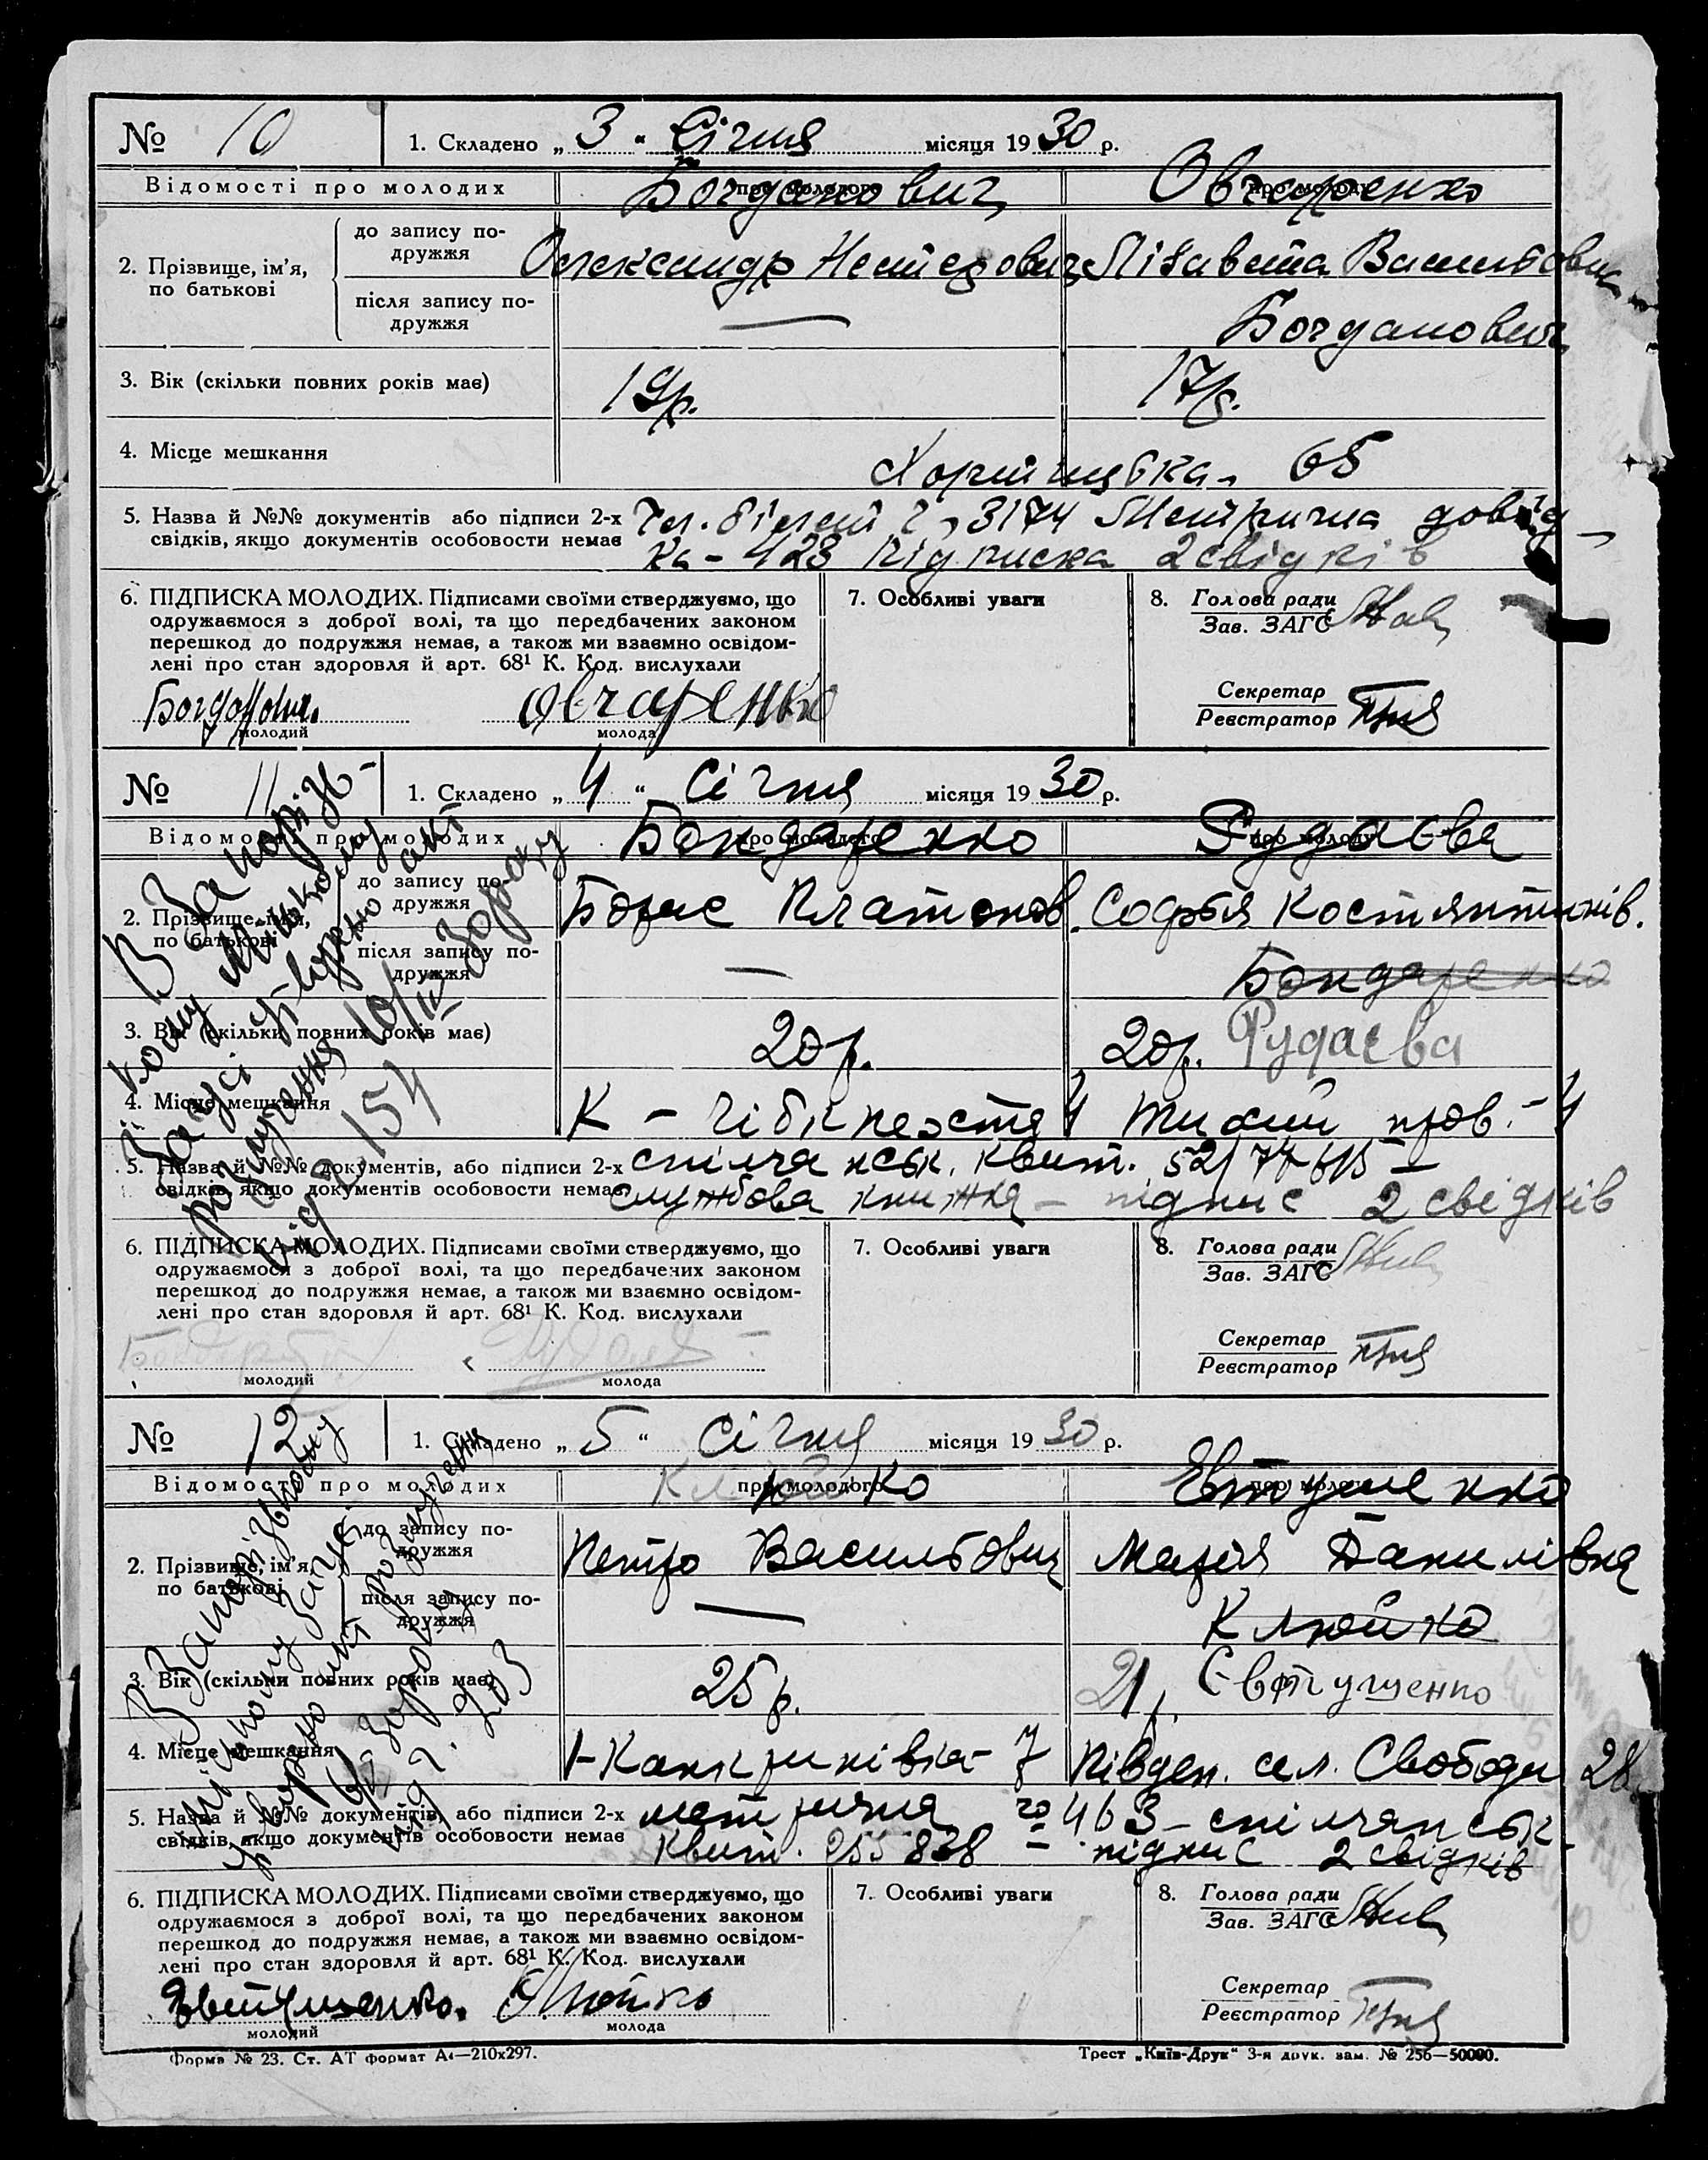 № 10 1. Складено „ 3 “ Січня місяця 19 30 р.
Відомості про молодих про молодого про молоду
Богданович Овчаренко
2. Прізвище, ім'я, по батькові
до запису подружжя
Олександр Нестерович Лізавета Василівна
після запису подружжя
— Богданович
3. Вік (скільки повних років має) 19р. 17р.
4. Місце мешкання Хортицька 65
5. Назва й №№ документів або підписи 2-х Чл. білет 3174 Метрична довід
свідків, якщо документів особовости немає ка – 428 підписка 2 свідків
6. ПІДПИСКА МОЛОДИХ. Підписами своїми стверджуємо, що
одружаємося з доброї волі, та що передбачених законом
перешкод до подружжя немає, а також ми взаємно освідом-
лені про стан здоровля й арт. 68¹ К. Код. вислухали
Овчаренко
молодий молода
7. Особливі уваги
8. Голова ради
Зав. ЗАГС
Секретар
Реєстратор
№ 11 1. Складено „ 4 “ Січня місяця 19 30 р.
Відомості про молодих про молодого про молоду
Бондаренко Рудаєва
2. Прізвище, ім'я, по батькові
до запису подружжя
Борис Платонов. Софья Костянтинів.
після запису подружжя
— Бондаренко
3. Вік (скільки повних років має) 20р. 20р. Рудаєва
4. Місце мешкання 4 Тихий пров. – 4
5. Назва й №№ документів, або підписи 2-х спілчанськ. квит.
свідків, якщо документів особовости немає службова книжка – підпис 2 свідків
В Запорізь-
кому Міському
Загсі утворено акт
розлучення 10/II 30 року
від 154
6. ПІДПИСКА МОЛОДИХ. Підписами своїми стверджуємо, що
одружаємося з доброї волі, та що передбачених законом
перешкод до подружжя немає, а також ми взаємно освідом-
лені про стан здоровля й арт. 68¹ К. Код. вислухали
молодий молода
7. Особливі уваги
8. Голова ради
Зав. ЗАГС
Секретар
Реєстратор
№ 12 1. Складено „ 5 “ Січня місяця 19 30 р.
Відомості про молодих про молодого про молоду
Клюйко Евтушенко
2. Прізвище, ім'я, по батькові
до запису подружжя
Петро Васильович Марія Данилівна
після запису подружжя
— Клюйко
3. Вік (скільки повних років має) 25р. 21р. Євтушенко
4. Місце мешкання Канкринівка – 7 Півден. сел. Свободи 28
5. Назва й №№ документів, або підписи 2-х метрична 463 – спілчанськ.
свідків якщо документів особовости немає квит. 255838 – підпис 2 свідків
В Запорізькому
Міському Загсі
утворено акт розлучення
30 року
від 203
6. ПІДПИСКА МОЛОДИХ. Підписами своїми стверджуємо, що
одружаємося з доброї волі, та що передбачених законом
перешкод до подружжя немає, а також ми взаємно освідом-
лені про стан здоровля й арт. 68¹ К. Код. вислухали
Евтушенко. Клюйко
молодий молода
7. Особливі уваги
8. Голова ради
Зав. ЗАГС
Секретар
Реєстратор
Форма № 23. Ст. АТ формат А4—210х297. Трест „Київ-Друк“ 3-я друк. зам. № 256—50000.